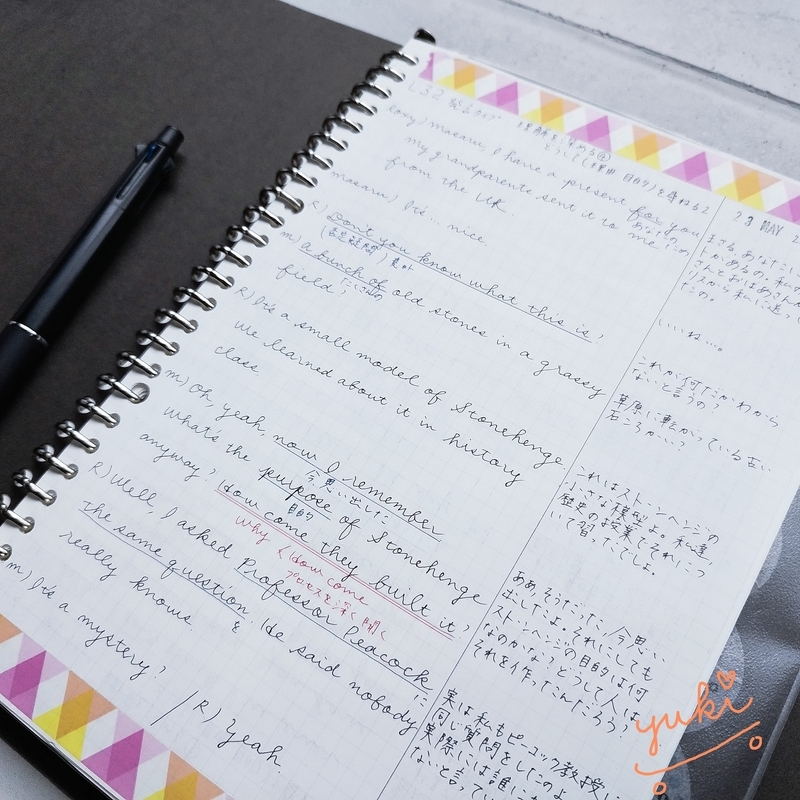 L32
23 MAY 2
) masaru, I have a present for you
my grandparents sent it to me
from the UK.
masaru) It's... nice
R) Don't you know what this is?
(否定疑問) 意外
m) a bunch of old stones in a grassy
たくさんの
field?
R) It's a small model of Stonehenge
We learned about it in history
class
m) Oh, yeah, now I remember
今思い出した
What's the purpose of Stonehenge
目的
anyway? How come they built it?
why < How come
プロセスを深く聞く
R) Well, I asked Professor Peacock
the same question. He said nobody
を
に
really knows.
m) It's a mystery? / R) Yeah.
いいね…。
これが何だかわから
ないと言うの?
草原に転がっている古い
石ころかい?
これはストーンヘンジの
小さな模型よ。私達、
歴史の授業でそれにつ
いて習ったでしょ。
ああ、そうだった、今思い
出したよ。それにしても
ストーンヘンジの目的は何
なのかな?どうして人は
それを作ったんだろう?
実は私もピーコック教授に
同じ質問をしたのよ
実際には誰に
ないと言ってい
yuki